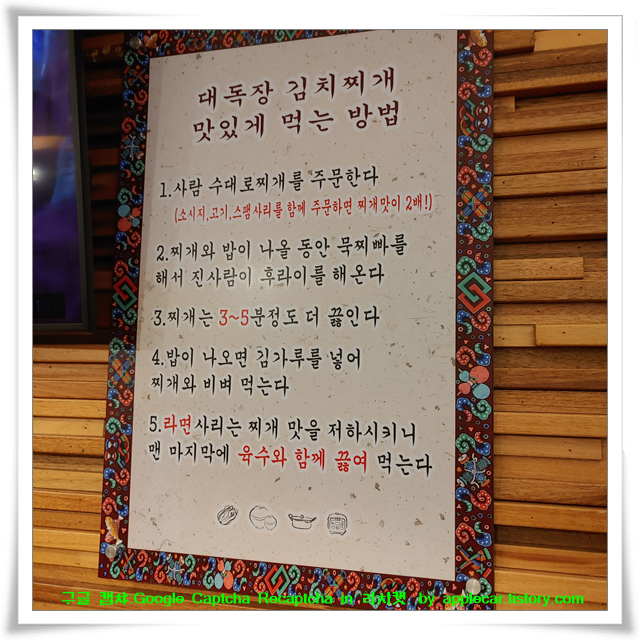 대독장 김치찌개
맛있게 먹는 방법
1.사람 수대로찌개를 주문한다
(소시지,고기,스팸사리를 함께 주문하면 찌개맛이 2배!)
2.찌개와 밥이 나올 동안 묵찌빠를
해서 진사람이 후라이를 해온다
3.찌개는 3~5분정도 더 끓인다
4.밥이 나오면 김가루를 넣어
찌개와 비벼 먹는다
5.라면사리는 찌개 맛을 저하시키니
맨 마지막에 육수와 함께 끓여 먹는다
구글 캡챠 Google Captcha Recaptcha in 러시벳 by applecar.tistory.com